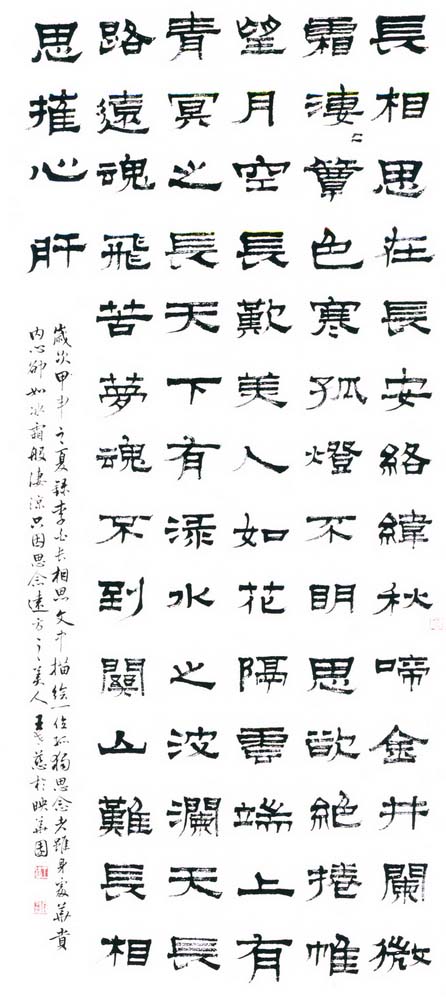 長相思在長安絡緯秋啼金井闌微
霜淒〻簟色寒孤燈不明思欲絕捲帷
望月空長歎美人如花隔雲端上有
青冥之長天下有淥水之波瀾天長
路遠魂飛苦夢魂不到關山難長相
思摧心肝
歲次甲申之夏錄李白長相思文中描繪一位孤獨思念者雖身處華貴
內心卻如冰霜般淒涼只因思念遠方之美人 王慈於映華園